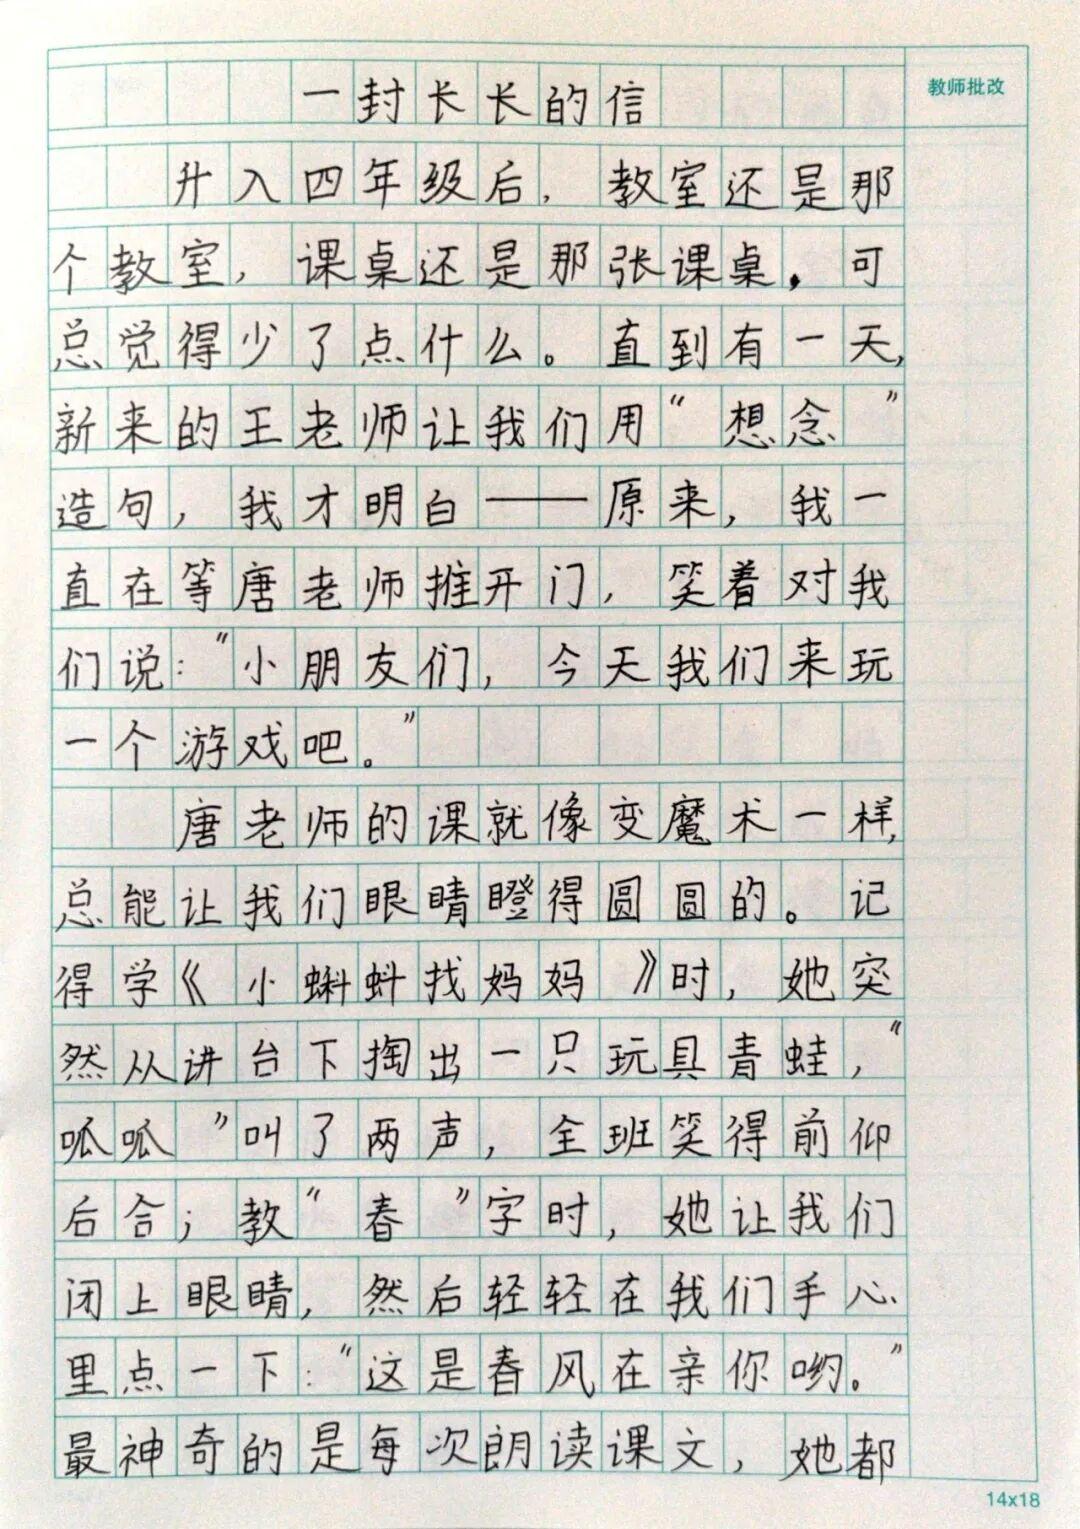 一封长长的信
教师批改
升入四年级后，教室还是那
个教室，课桌还是那张课桌。可
总觉得少了点什么。直到有一天，
新来的王老师让我们用“想念”
造句，我才明白——原来，我一
直在等唐老师推开门，笑着对我
们说：“小朋友们，今天我们来玩
一个游戏吧。”
唐老师的课就像变魔术一样，
总能让我们眼睛瞪得圆圆的。记
得学《小蝌蚪找妈妈》时，她突
然从讲台下掏出一只玩具青蛙，“
呱呱”叫了两声，全班笑得前仰
后合；教“春”字时，她让我们
闭上眼睛，然后轻轻在我们手心
里点一下：“这是春风在亲你哟。”
最神奇的是每次朗读课文，她都
14x18